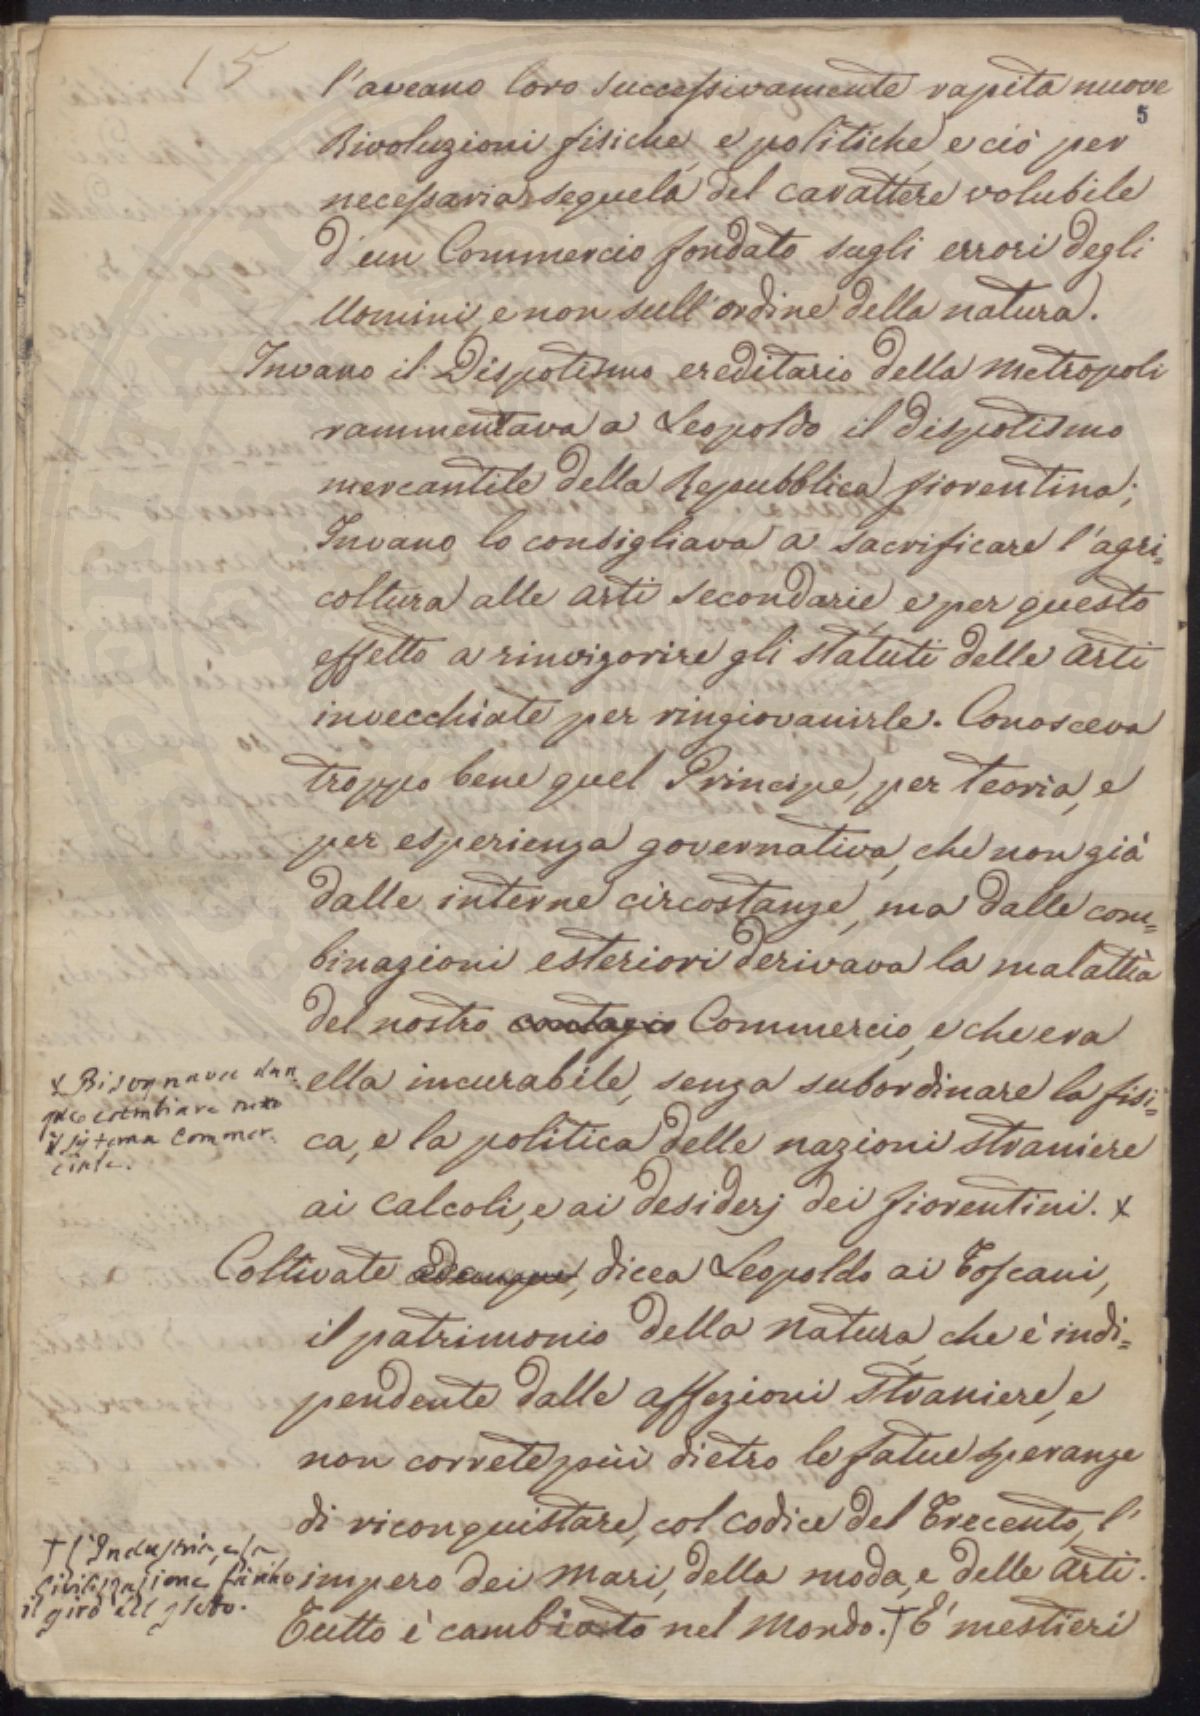 15
l'aveano loro successivamente rapita nuove
5
Rivoluzioni fisiche, e politiche, e ciò per
necessaria sequela del carattere volubile
d'un Commercio fondato sugli errori degli
Uomini, e non sull'ordine della natura.
Invano il Dispotismo ereditario della Metropoli
rammentava a Leopoldo il dispotismo
mercantile della Repubblica fiorentina;
Invano lo consigliava a sacrificare l'agri=
coltura alle arti secondarie, e per questo
effetto a rinvigorire gli statuti delle Arti
invecchiate per ringiovanirle. Conosceva
troppo bene quel Principe, per teoria, e
per esperienza governativa, che non già
dalle interne circostanze, ma dalle com=
binazioni esteriori derivava la malattia
del nostro contagio Commercio, e che era
ella incurabile, senza subordinare la fisi=
ca, e la politica delle nazioni straniere
ai calcoli, e ai desiderj dei fiorentini. x
x Bisognava dun
que cambiare
il sistema commer.
ciale.
Coltivate adunque, dicea Leopoldo ai Toscani,
il patrimonio della Natura, che è indi=
pendente dalle affezioni straniere, e
non correte più dietro le fatue speranze
di riconquistare, col codice del Trecento, l'
impero dei Mari, della moda, e delle Arti.
Tutto è cambiato nel Mondo. † E' mestieri
† l'Industria, e la
civilizzazione fanno
il giro del globo.